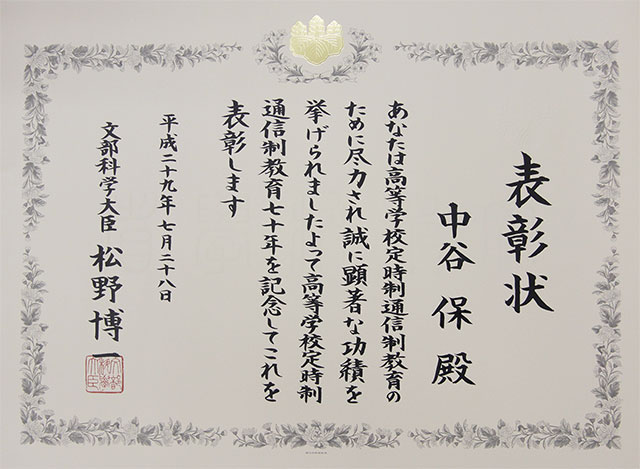 表彰状
中谷 保 殿
あなたは高等学校定時制通信制教育の
ために尽力され誠に顕著な功績を
挙げられましたよって高等学校定時制
通信制教育七十年を記念してこれを
表彰します
平成二十九年七月二十八日
文部科学大臣 松野博一